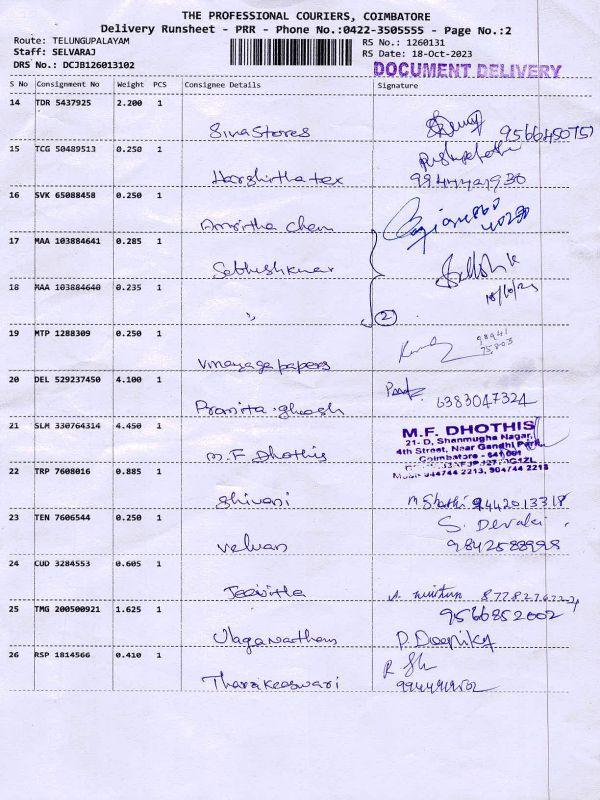 THE PROFESSIONAL COURIERS, COIMBATORE
Delivery Runsheet - PRR - Phone No.:0422-3505555 - Page No.:2
Route: TELUNGUPALAYAM
Staff: SELVARAJ
DRS No.: DCJB126013102
RS No.: 1260131
RS Date: 18-Oct-2023
DOCUMENT DELIVERY
S No Consignment No Weight PCS Consignee Details Signature
14 TDR 5437925 2.200 1
Siva Stores 9566450757
15 TCG 50489513 0.250 1
Harshitha tex
16 SVK 65088458 0.250 1
Amritha Chem
17 MAA 103884641 0.285 1
Sathishkumar
18 MAA 103884640 0.235 1
18/10/23
2
19 MTP 1288309 0.250 1
98941
75803
Vinayaga papers
20 DEL 529237450 4.100 1
Pramita ghosh 6383047324
21 SLM 330764314 4.450 1
M.F. DHOTHIS
21- D, Shanmugha Nagar,
4th Street, Near Gandhi Park,
Coimbatore - 641 001
94744 2213, 904744 2213
M.F Dhothis
22 TRP 7608016 0.885 1
Shivani 9442013318
23 TEN 7606544 0.250 1
S. Devaki
Velvan 9842588998
24 CUD 3284553 0.605 1
Jeevitha
25 TMG 200500921 1.625 1
9566852002
Ulaganathan P. Deepika
26 RSP 1814566 0.410 1
Tharakeaswari